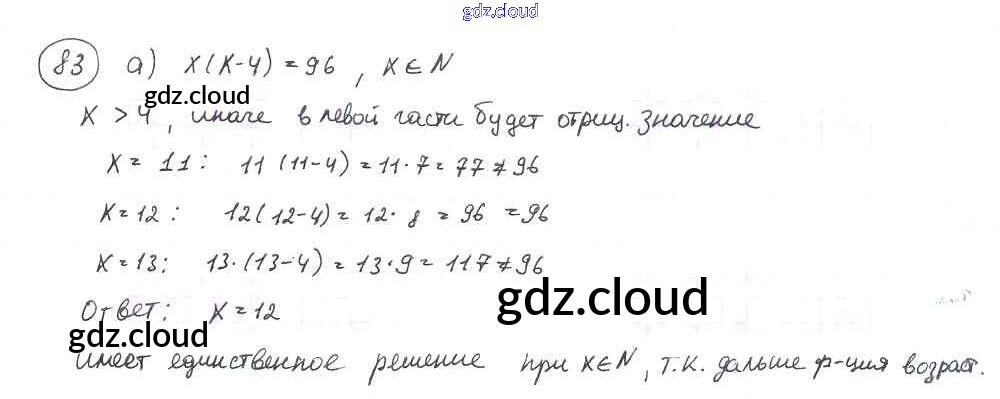 gdz.cloud
83 а) x(x-4) = 96, x ∈ N
gdz.cloud
x > 4, иначе в левой части будет отриц. значение
x = 11: 11(11-4) = 11·7 = 77 ≠ 96
x = 12: 12(12-4) = 12·8 = 96 = 96
x = 13: 13·(13-4) = 13·9 = 117 ≠ 96
gdz.cloud
Ответ: x = 12
gdz.cloud
имеет единственное решение при x ∈ N, т.к. дальше ф-ция возраст.